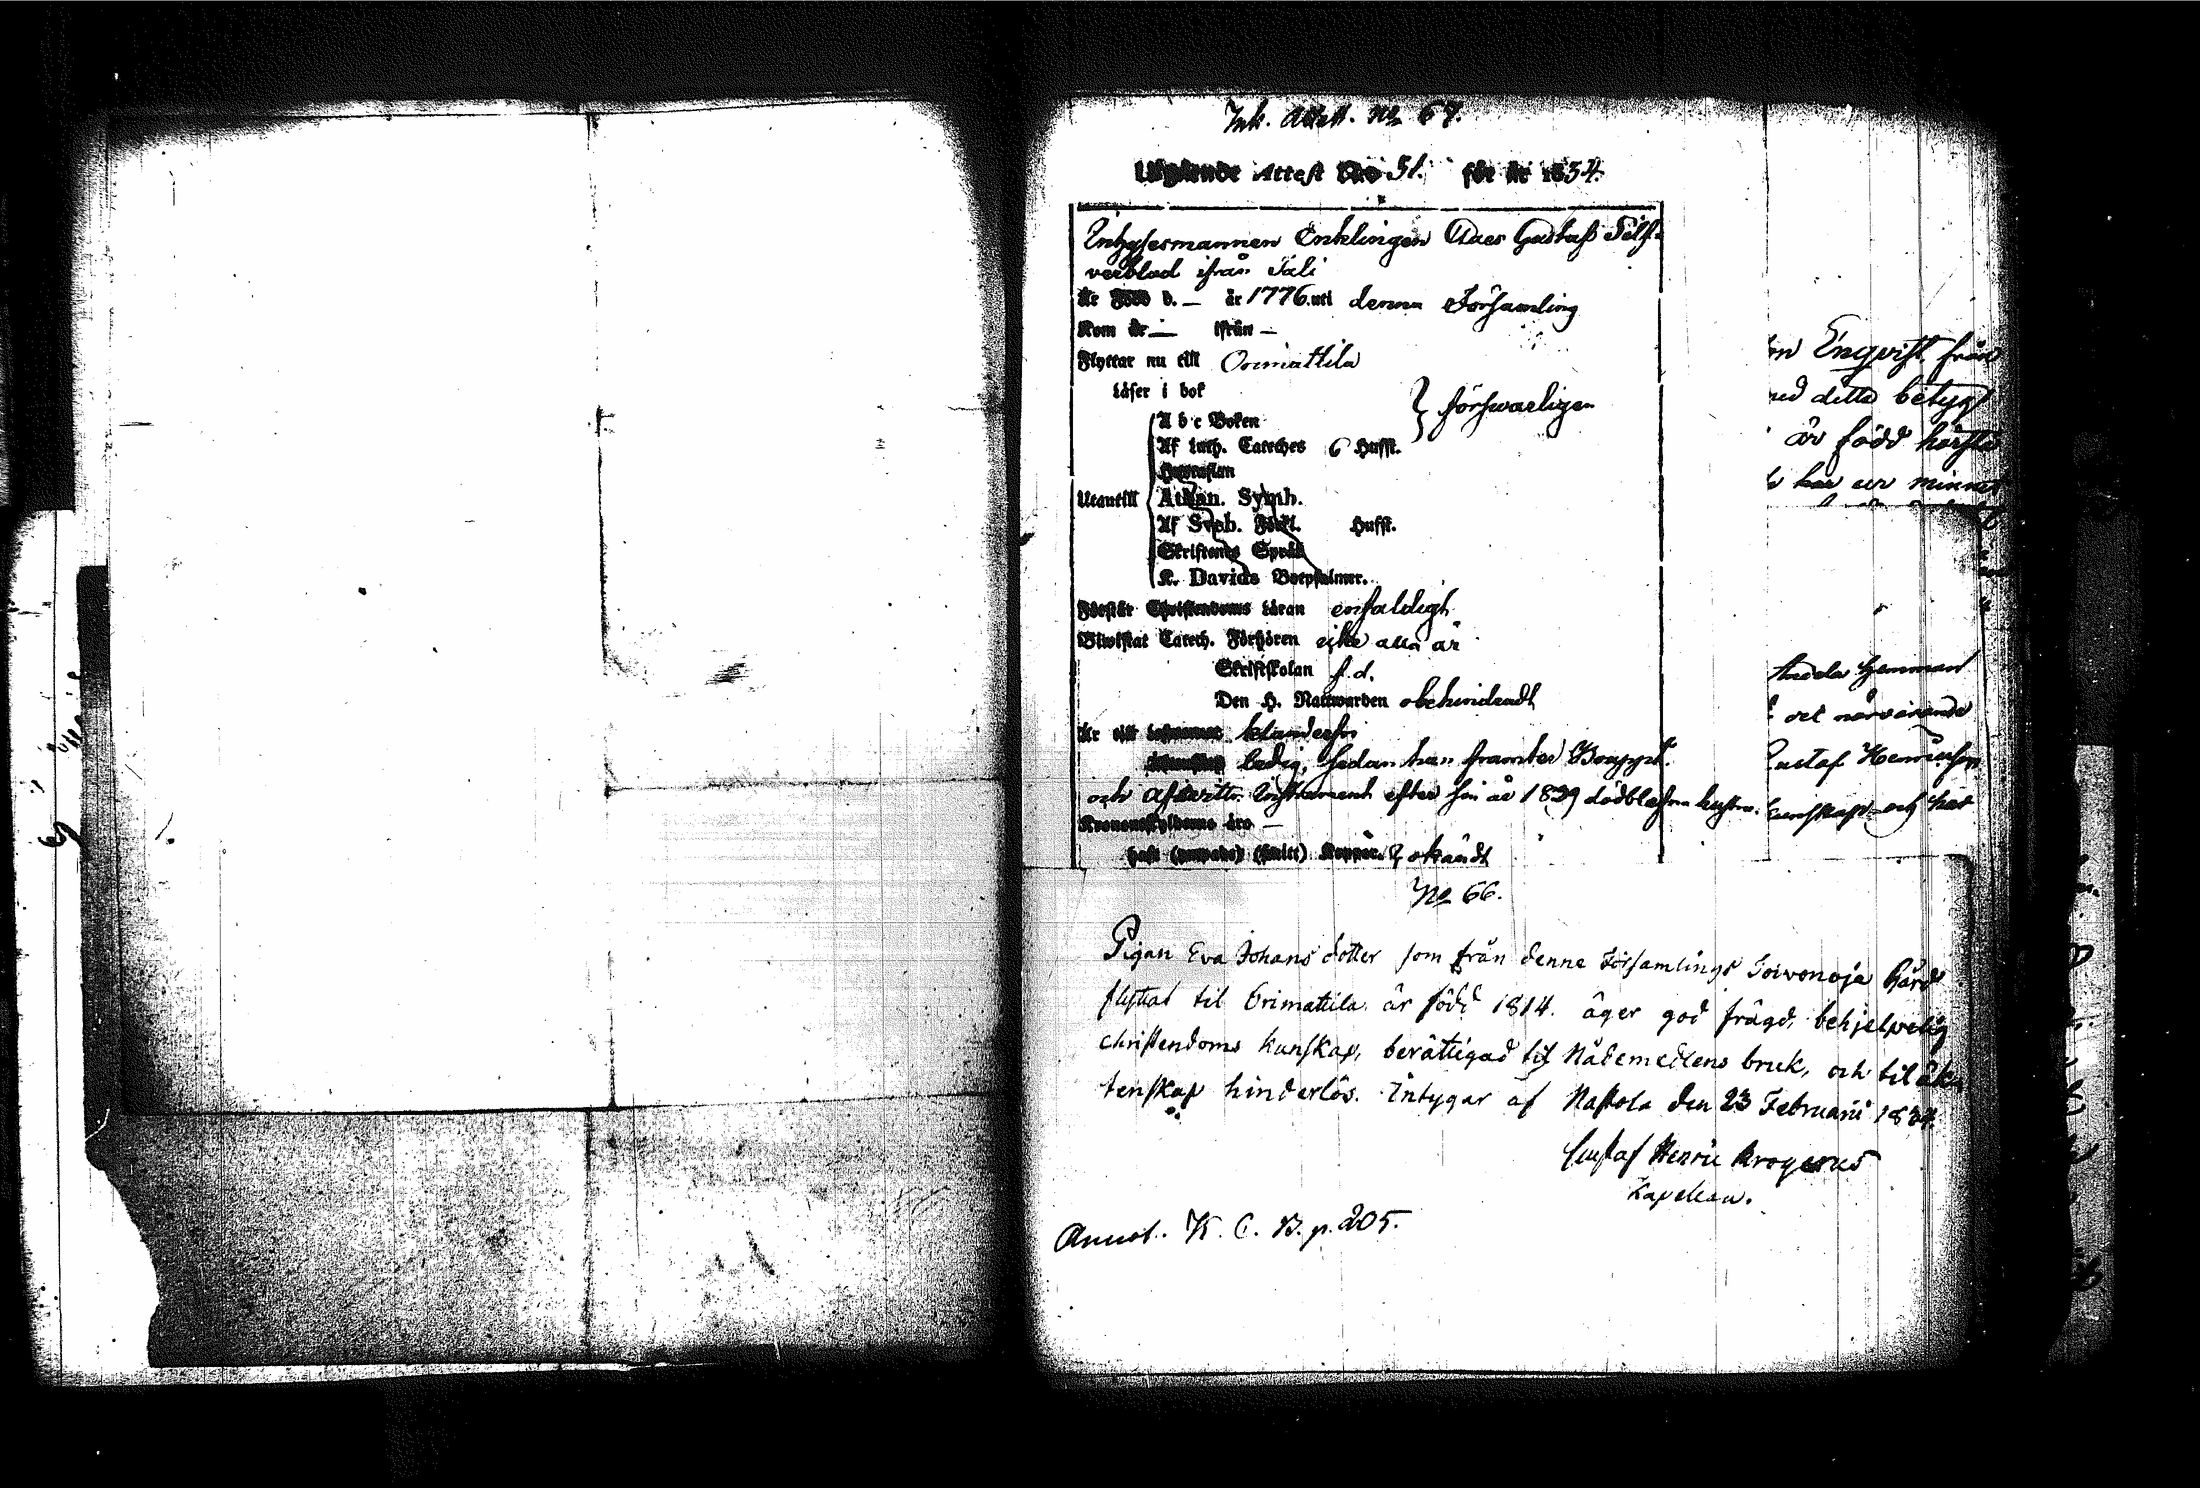 Ink. Attest. No 67.
Utgående Attest No 51. för år 1834.
Inhysesmannen Enklingen Claes Gustaf Silf-
verblad ifrån Tali
Är Född d. — år 1776. uti denna Församling
Kom år — ifrån —
Flyttar nu till Orimattila
Läser i bok
A b c Boken } försvarligen
Af Luth. Cateches 6 Hufst.
Hustaflan
Utantill Athan. Symb.
Af Sveb. Förkl. Hufst.
Skriftenes Språk
K. Davids Botpsalmer.
Förstår Christendoms Läran enfaldigt
Biwistat Catech. Förhören icke alla år
Skriftskolan s. d.
Den H. Nattwarden obehindradt
Är till lefwernet klanderfri
ledig, sedan han framtet Bouppt.
och Afvittr. Instrument efter sin år 1829 dödblefna hustru.
Kronoutskylderne äro —
haft (smitt) Koppor } okändt
No 66.
Pigan Eva Johans dotter som från denne Församlings Toivonoja Gård
flyttat til Orimattila är född 1814. äger god frägd, behjelpelig
christendoms kunskap, berättigad til Nådemedlens bruk, och til äk-
tenskap hinderlös. Intygar af Nastola den 23 Februarii 1834.
Gustaf Henric Krogerus
Kapellan.
Annot. K. C. B. p. 205.
Enqvist från
med detta betyg
är född
har
det närvarande
Gustaf
kunskap och har